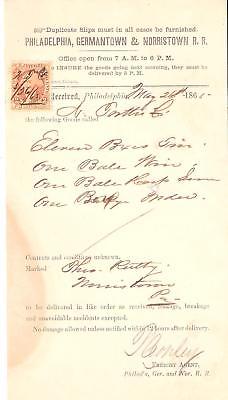 Duplicate Slips must in all cases be furnished.
PHILADELPHIA, GERMANTOWN & NORRISTOWN R. R.
Office open from 7 A. M. to 6 P. M.
To INSURE the goods going next morning, they must be
delivered by 5 P. M.
Received, Philadelphia, May 186
the following Goods called
Eleven Bxs Tin
One Bale Wire
One Bale
One Order
Contents and conditions unknown.
Marked Thos.
Norristown
Pa
to be delivered in like order as received, leakage, breakage
and unavoidable accidents excepted.
No damage allowed unless notified within 12 hours after delivery.
FREIGHT AGENT,
Philad'a, Ger. and Nor. R. R.